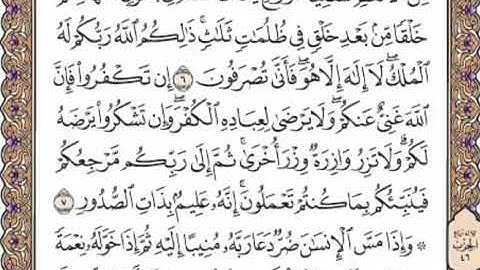 خَلْقًا مِّنۢ بَعْدِ خَلْقٍ فِي ظُلُمَٰتٍ ثَلَٰثٍۚ ذَٰلِكُمُ ٱللَّهُ رَبُّكُمْ لَهُ
ٱلْمُلْكُۖ لَآ إِلَٰهَ إِلَّا هُوَۖ فَأَنَّىٰ تُصْرَفُونَ ٦ إِن تَكْفُرُوا۟ فَإِنَّ
ٱللَّهَ غَنِيٌّ عَنكُمْۖ وَلَا يَرْضَىٰ لِعِبَادِهِ ٱلْكُفْرَۖ وَإِن تَشْكُرُوا۟ يَرْضَهُ
لَكُمْۗ وَلَا تَزِرُ وَازِرَةٌ وِزْرَ أُخْرَىٰۚ ثُمَّ إِلَىٰ رَبِّكُم مَّرْجِعُكُمْ
فَيُنَبِّئُكُم بِمَا كُنتُمْ تَعْمَلُونَۚ إِنَّهُۥ عَلِيمٌۢ بِذَاتِ ٱلصُّدُورِ ٧
۞ وَإِذَا مَسَّ ٱلْإِنسَٰنَ ضُرٌّ دَعَا رَبَّهُۥ مُنِيبًا إِلَيْهِ ثُمَّ إِذَا خَوَّلَهُۥ نِعْمَةً
الحزب
٤٦